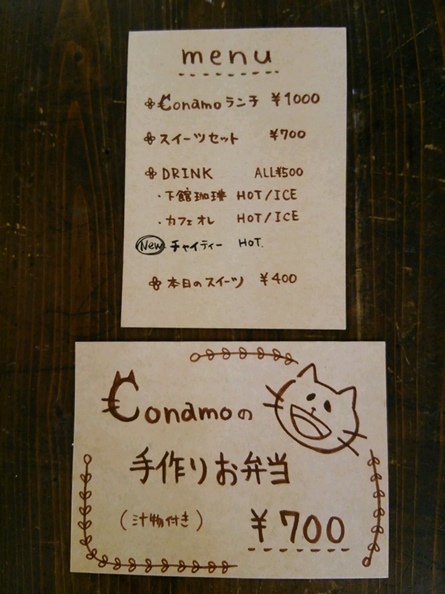 menu
Conamoランチ ¥1000
スイーツセット ¥700
DRINK ALL¥500
・下館珈琲 HOT/ICE
・カフェオレ HOT/ICE
New チャイティー HOT.
本日のスイーツ ¥400
Conamoの
手作りお弁当
(汁物付き)
¥700